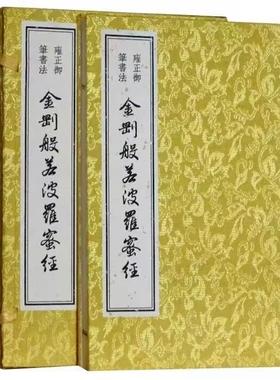 雍正御
筆書法
金剛般若波羅蜜經
雍正御
筆書法
金剛般若波羅蜜經